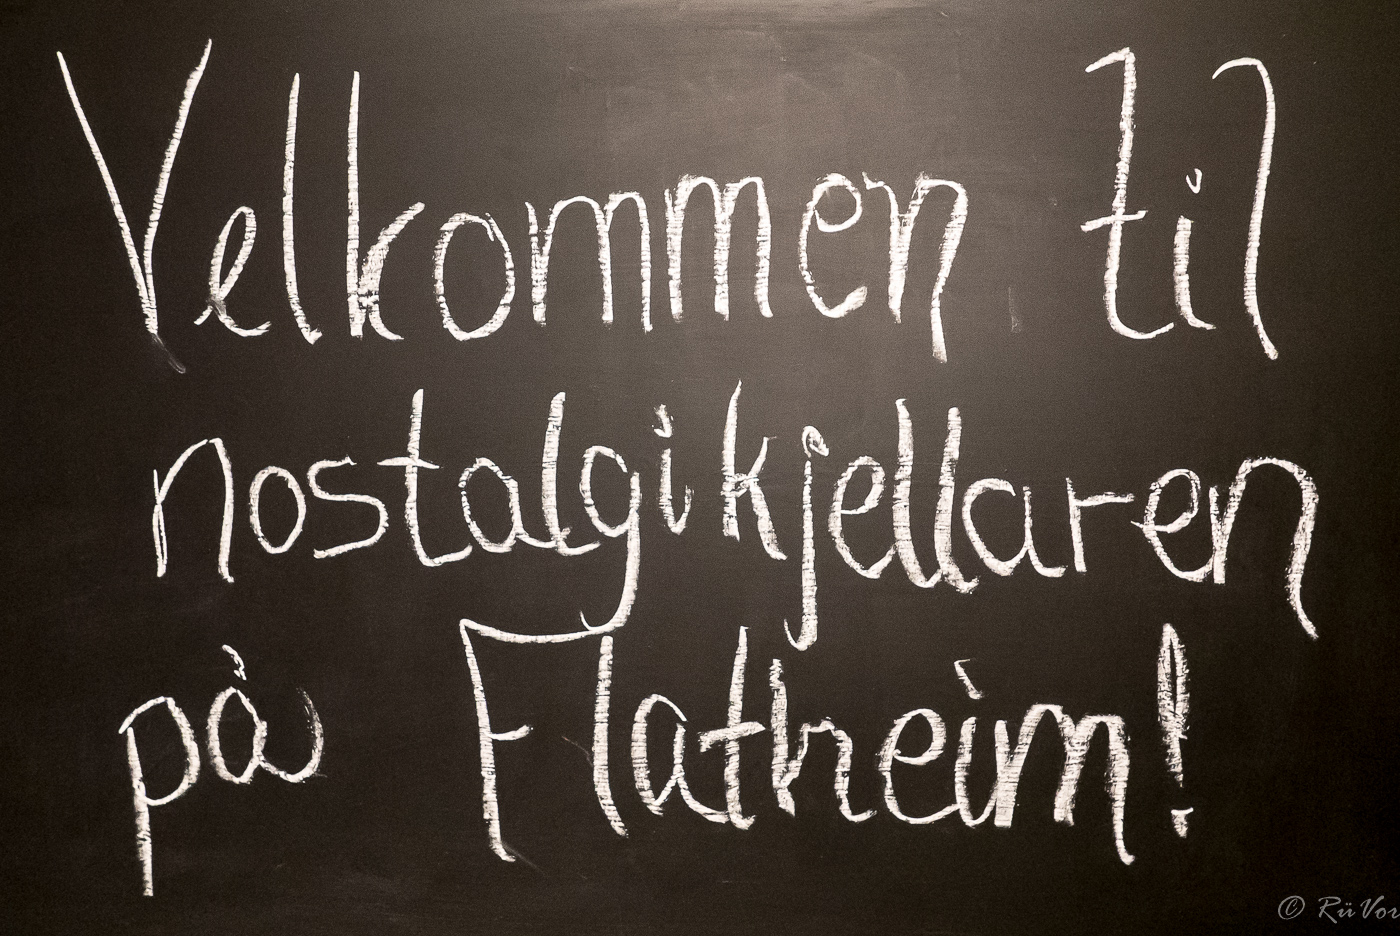 Velkommen til
nostalgikjellaren
på Flatheim!